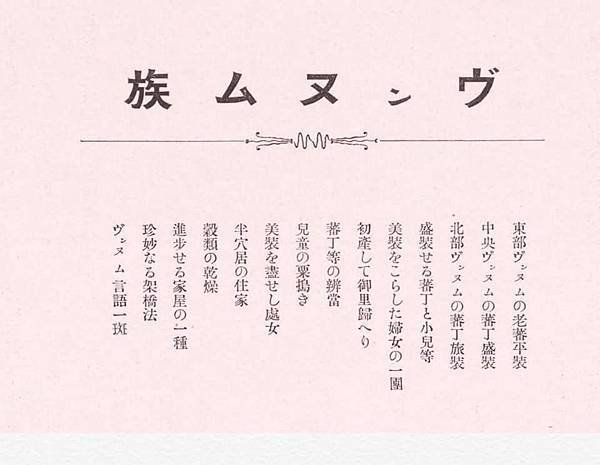 ヴンヌム族
東部ヴンヌムの老蕃平裝
中央ヴンヌムの蕃丁盛裝
北部ヴンヌムの蕃丁旅裝
盛裝せる蕃丁と小兒等
美裝をこらした婦女の一團
初產して御里歸へり
蕃丁等の辨當
兒童の粟搗き
美裝を盡せし處女
半穴居の住家
穀類の乾燥
進步せる家屋の一種
珍妙なる架橋法
ヴンヌム言語一斑